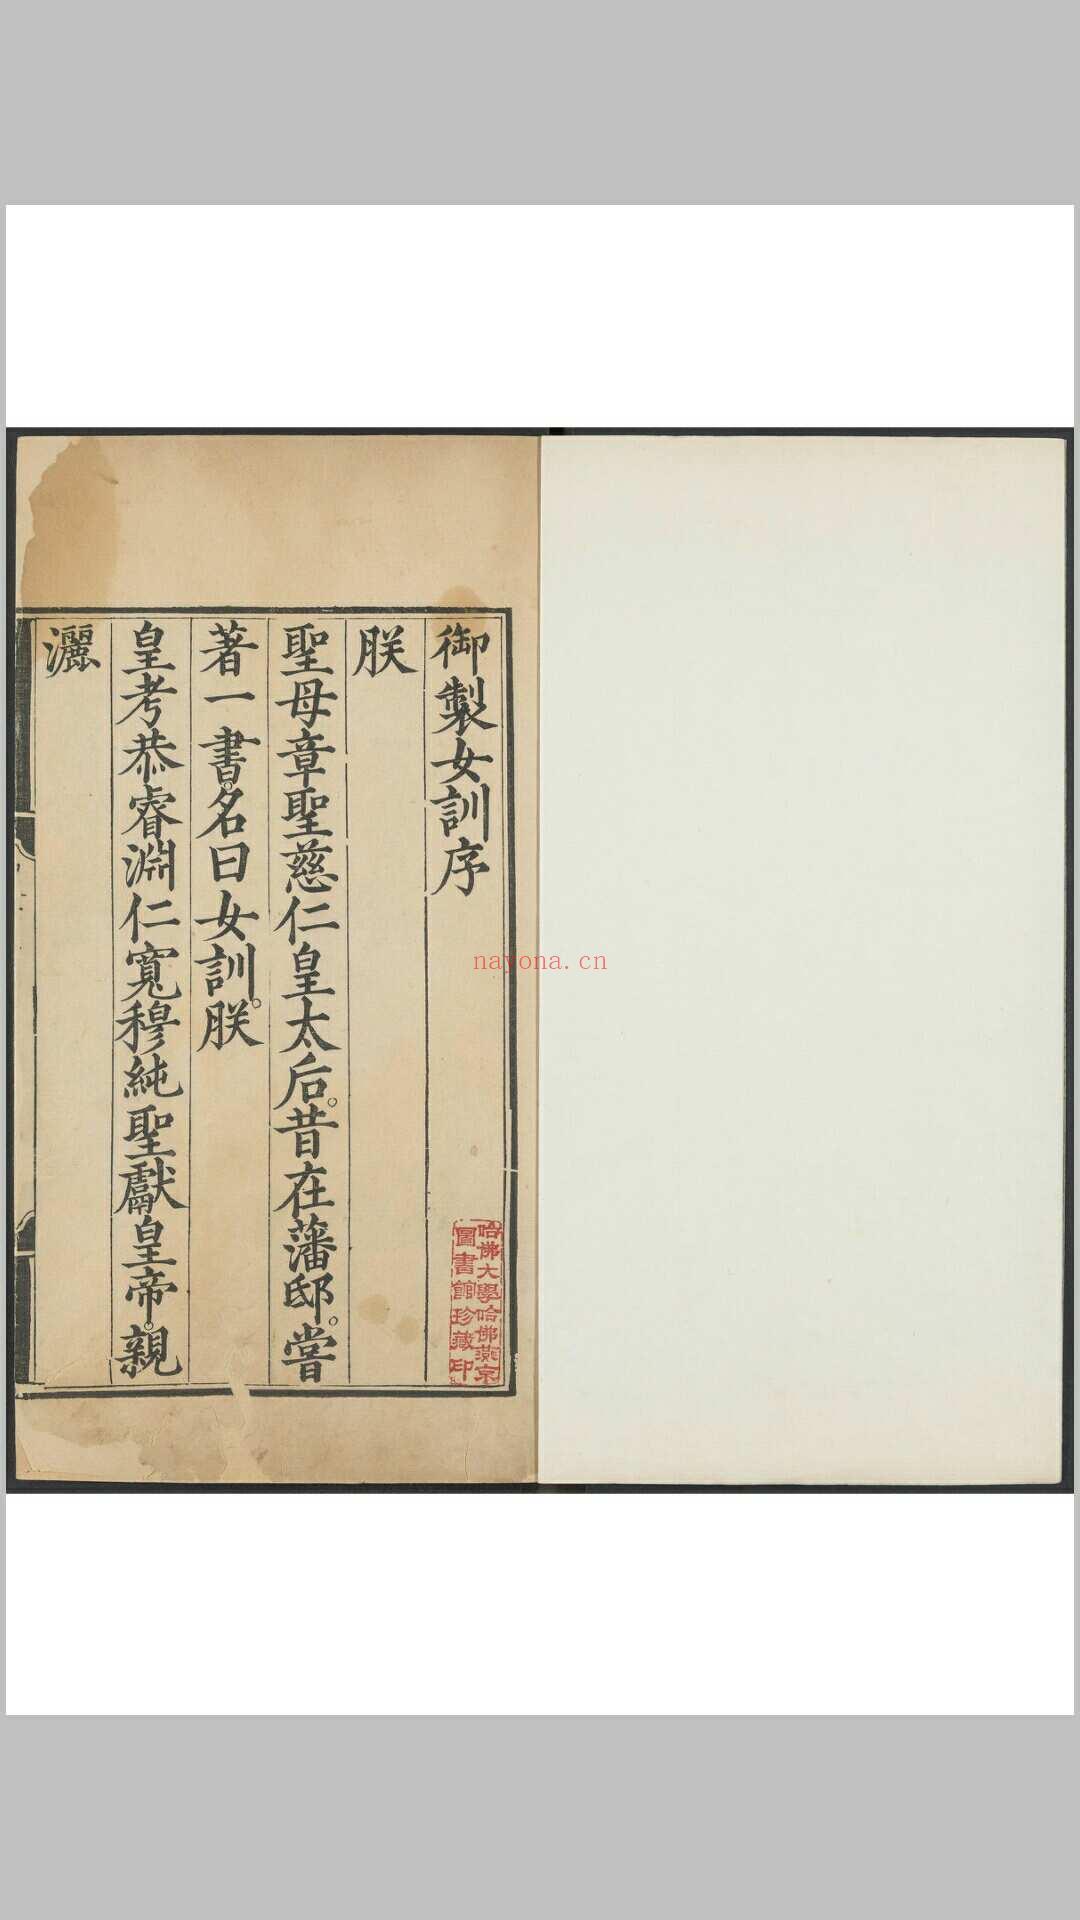 御製女訓序
朕
聖母章聖慈仁皇太后。昔在藩邸。嘗
著一書。名曰女訓。朕
皇考恭睿淵仁寬穆純聖獻皇帝。親
灑
哈佛大學哈佛燕京
圖書館珍藏印
nayona.cn